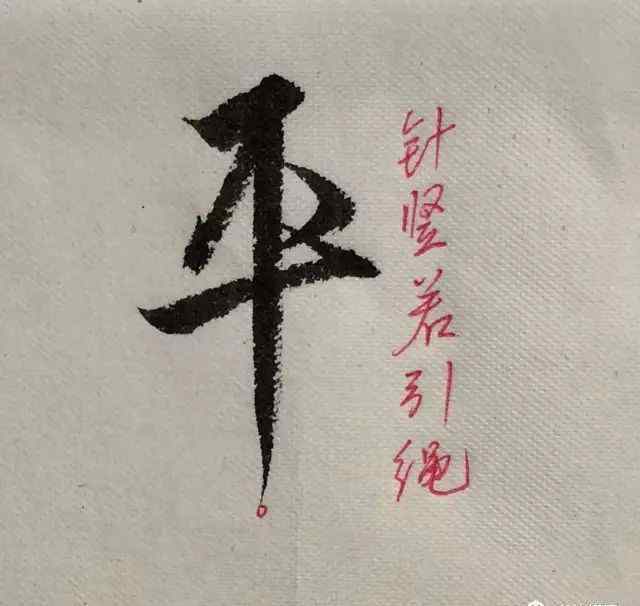 平
针竖若引绳